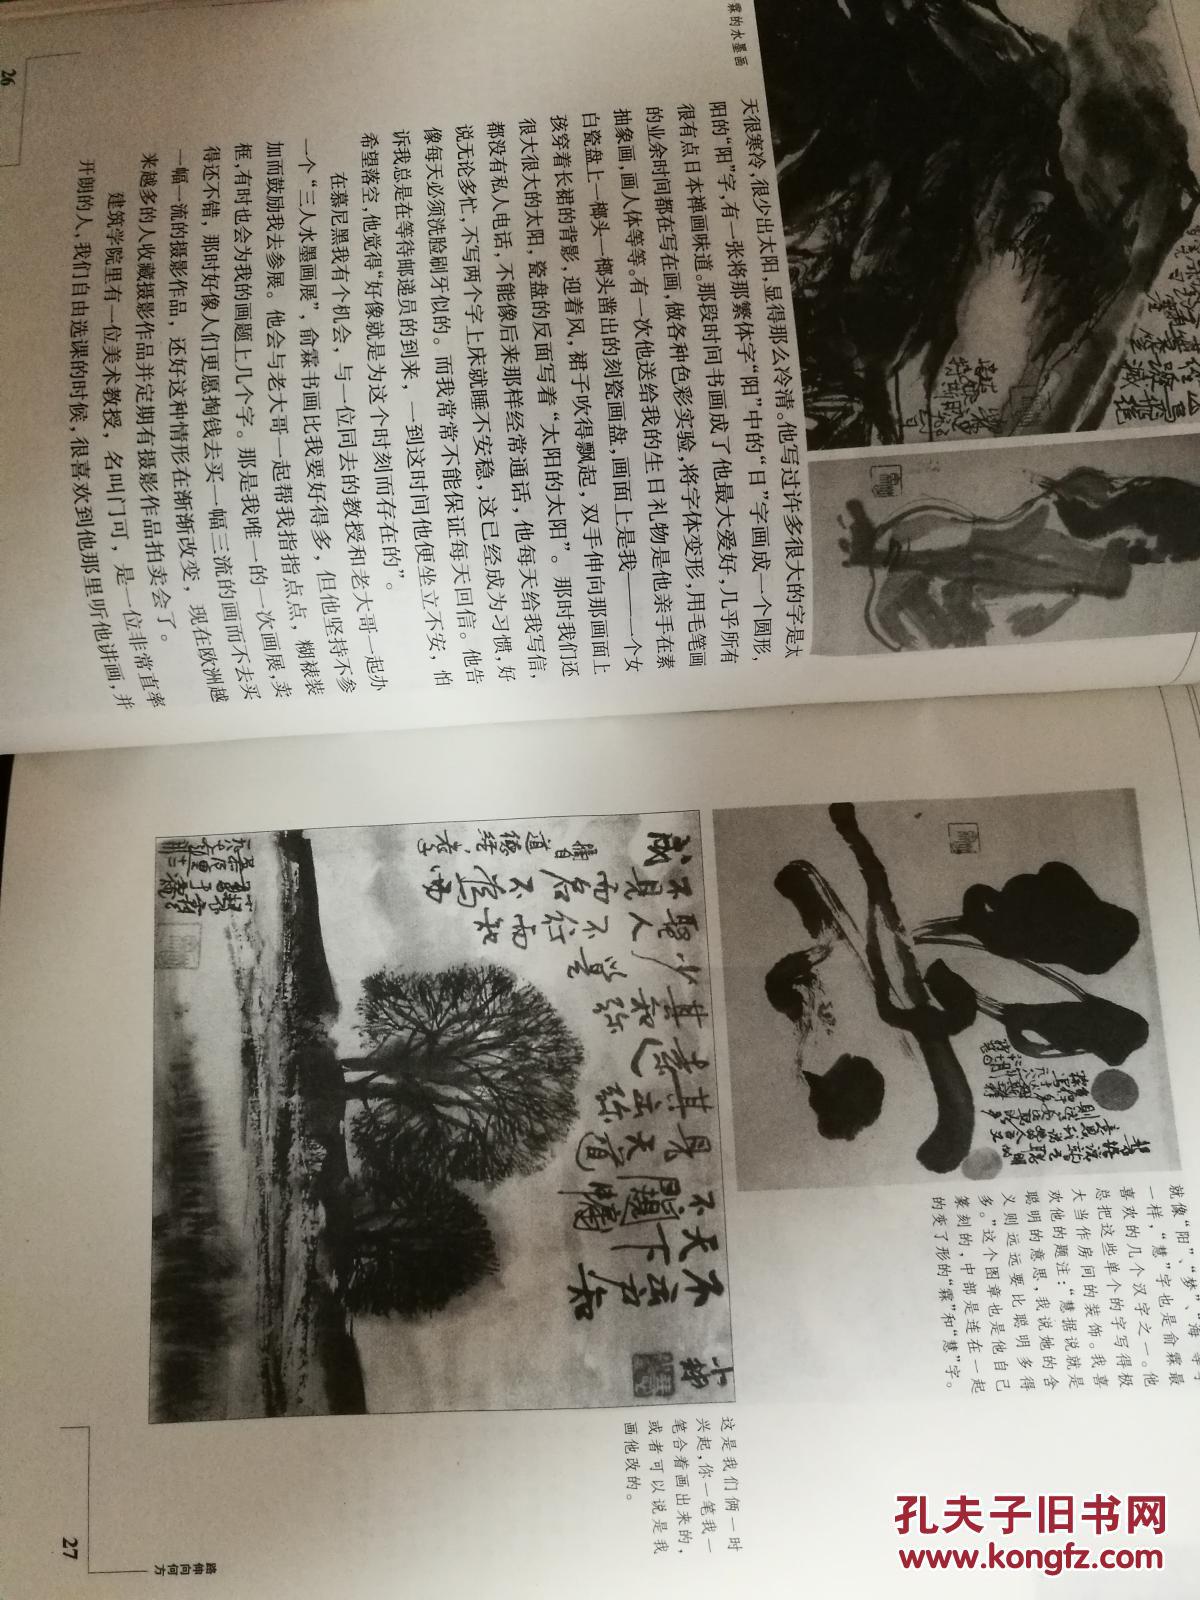 霖的水墨画
天很寒冷，很少出太阳，显得那么冷清。他写过许多很大的字是太
阳的“阳”字，有一张将那繁体字“阳”中的“日”字画成一个圆形，
很有点日本禅画味道。那段时间书画成了他最大爱好，几乎所有
的业余时间都在写在画，做各种色彩实验，将字体变形，用毛笔画
抽象画，画人体等等。有一次他送给我的生日礼物是他亲手在素
白瓷盘上一榔头一榔头凿出的刻瓷画盘，画面上是我——一个女
孩穿着长裙的背影，迎着风，裙子吹得飘起，双手伸向那画面上
很大很大的太阳，瓷盘的反面写着“太阳的太阳”。那时我们还
都没有私人电话，不能像后来那样经常通话，他每天给我写信，
说无论多忙，不写两个字上床就睡不安稳，这已经成为习惯，好
像每天必须洗脸刷牙似的。而我常常不能保证每天回信。他告
诉我总是在等待邮递员的到来，一到这时间他便坐立不安，怕
希望落空，他觉得“好像就是为这个时刻而存在的”。
在慕尼黑我有个机会，与一位同去的教授和老大哥一起办
一个“三人水墨画展”，俞霖书画比我要好得多，但他坚持不参
加而鼓励我去参展。他会与老大哥一起帮我指指点点，糊裱装
框，有时也会为我的画题上几个字。那是我唯一的一次画展，卖
得还不错，那时好像人们更愿掏钱去买一幅三流的画而不去买
一幅一流的摄影作品，还好这种情形在渐渐改变，现在欧洲越
来越多的人收藏摄影作品并定期有摄影作品拍卖会了。
建筑学院里有一位美术教授，名叫门可，是一位非常直率
开朗的人，我们自由选课的时候，很喜欢到他那里听他讲画，并
26
就像“阳”、“梦”、“海”等字
一样，“慧”字也是俞霖最
喜欢的几个汉字之一。他
总把这些单个的字写得极
大当作房间的装饰。我喜
欢他的题注：“慧据说就是
聪明的意思，我说她的含
义则远远要比聪明多得
多。”这个图章也是他自己
篆刻的，中部是连在一起
的变了形的“霖”和“慧”字。
不出户知
天下
不窥牖
见天道
其出弥
远其知
弥少
是以聖人
不行而知
不見而名
不為而成
这是我们俩一时
兴起，你一笔我一
笔合着画出来的，
或者可以说是我
画他改的。
路伸向何方
27
孔夫子旧书网
www.kongfz.com